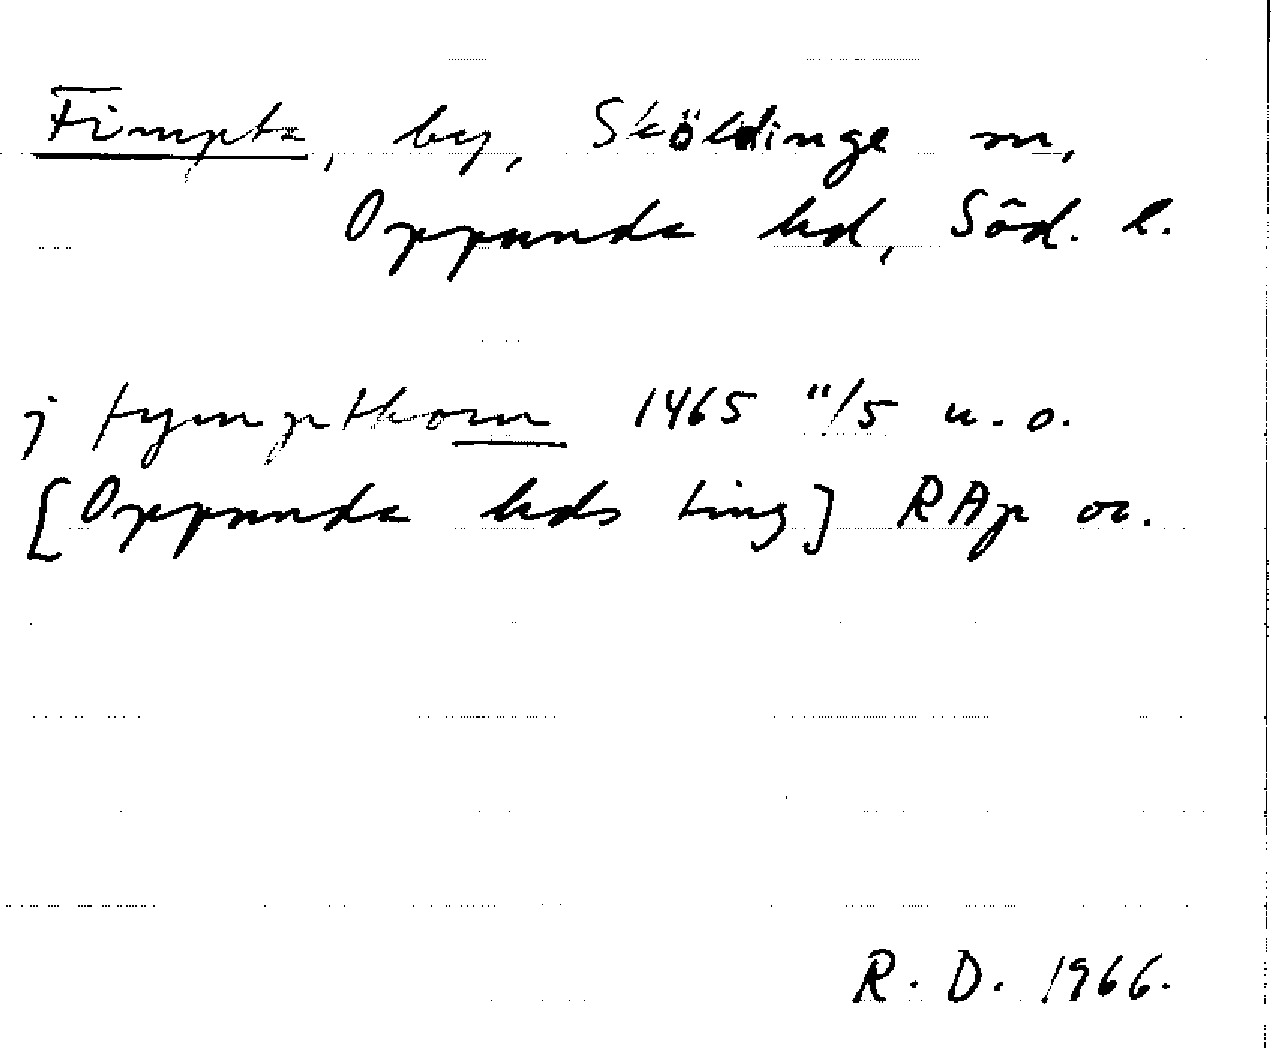 Fimpta, by, Sköldinge sn,
Oppunda hd, Söd. l.
j fympthom 1465 11/5 u. o.
[Oppunda hds ting] RAp or.
R. D. 1966.